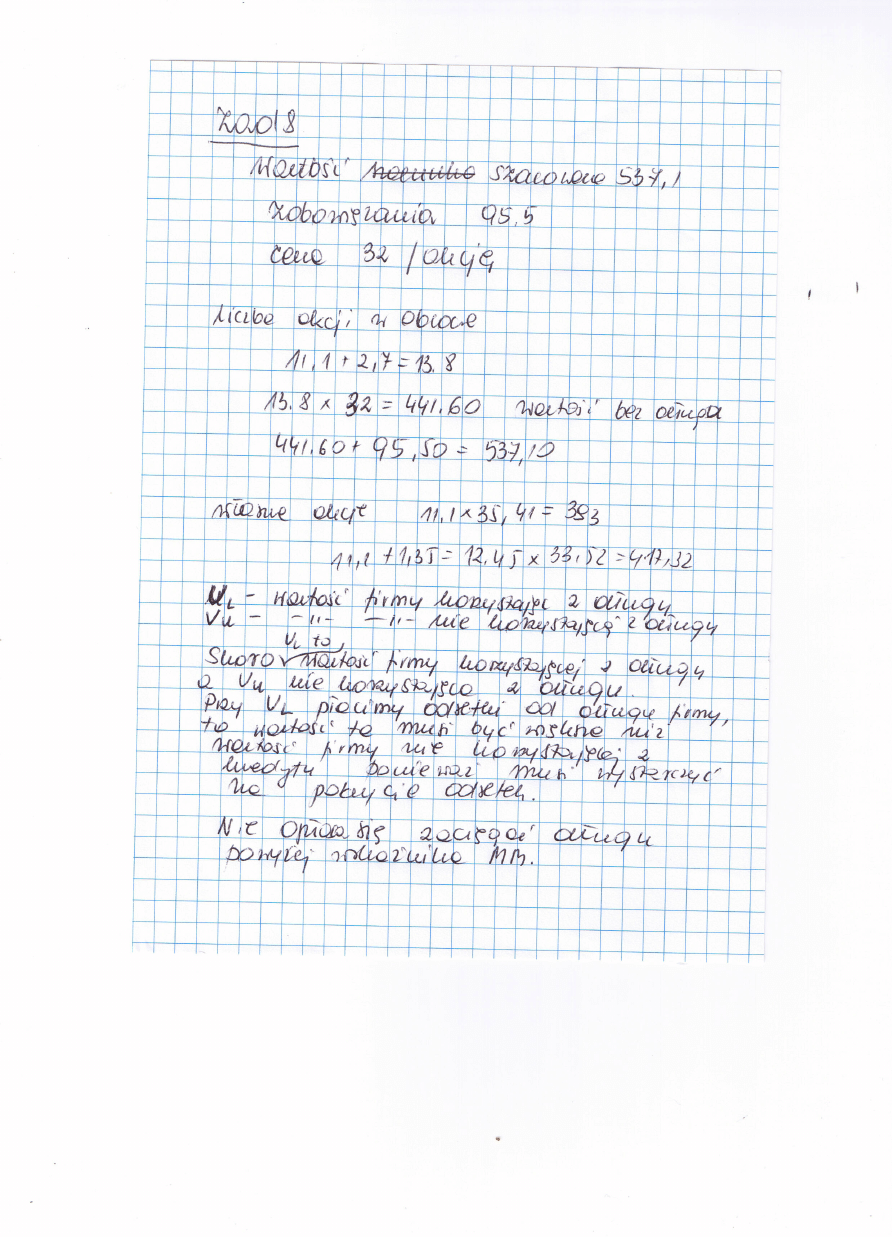 Zad 8
Wartość szacowana 537,1
Zobowiązania 95,5
cena 32 / akcję
liczba akcji w obrocie
11,1 + 2,7 = 13.8
13.8 x 32 = 441.60 wartość bez długu
441.60 + 95,50 = 537,10
własne akcje 11,1 x 35,41 = 393
11,1 + 1,35 = 12.45 x 33.52 = 417,32
VL - wartość firmy korzystając z długu
Vu - -"- -"- nie korzystającą z długu
VL to,
Skoro wartość firmy korzystającej z długu
a Vu nie korzystająca z długu.
Przy VL płacimy odsetki od długu firmy,
to wartość ta musi być większa niż
wartość firmy nie korzystającej z
kredytu ponieważ musi wystarczyć
na pokrycie odsetek.
Nie opłaca się zaciągać długu
powyżej wskaźnika MM.